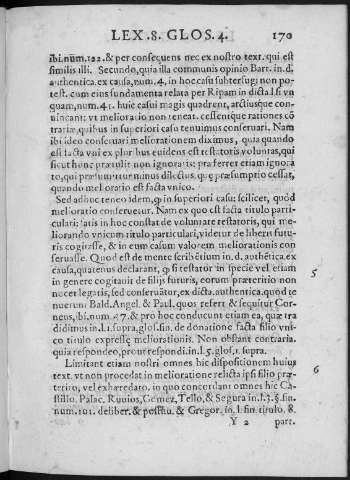 LEX.8. GLOS.4. 170
ibi. num. 122. & per consequens nec ex nostro text. qui est
similis illi. Secundo, quia illa communis opinio Bart. in. d.
authentica. ex causa, num. 4. in hoc casu subterfugi non po-
test. cum eius fundamenta relata per Ripam in dicta l. si vn
quam, num. 41. huic casui magis quadrent, arctiusque con-
uincant: vt melioratio non teneat. cessentque rationes cō
trariæ, quibus in superiori casu tenuimus conseruari. Nam
ibi ideo conseruari meliorationem diximus, quia quando
est facta vni ex pluribus euidens est testatoris voluntas, qui
sicut hunc prætulit non ignoratis: præferret etiam ignora
to, qui præsumitur minus dilectus. quæ præsumptio cessat,
quando melioratio est facta vnico.
Sed adhuc teneo idem, ꝙ in superiori casu: scilicet, quòd
melioratio conseruetur. Nam ex quo est facta titulo parti-
culari: satis in hoc constat de voluntate testatoris, qui me-
liorando vnicum titulo particulari, videtur de liberis futu-
ris cogitasse, & in eum casum valorem meliorationis con
seruasse. Quod est de mente scribētium in. d. authētica. ex
causa, quatenus declarant, ꝙ si testator in specie vel etiam
in genere cogitauit de filijs futuris, eorum præteritio non
nocet legatis, sed conseruātur, ex dicta. authentica. quod te
nuerunt Bald. Angel. & Paul. quos refert & sequitur Cor-
neus, ibi, num. 7. & pro hoc conducunt etiam ea, quæ tra
didimus in. l. 1. supra, glos. fin. de donatione facta filio vni-
co titulo expressę meliorationis. Non obstant contraria.
quia respondeo, prout respondi. in. l. 5. glos. 1. supra.
5
Limitant etiam nostri omnes hic dispositionem huius
text. vt non procedat in melioratione relicta ipsi filio præ-
terito, vel exhæredato. in quo concordant omnes hic Ca-
6
stillo. Palac. Ruuios, Gomez, Tello, & Segura in. l. 3. §. fin.
num. 101. deliber. & posthu. & Gregor. in. l. fin. titulo. 8.
Y 2 part.